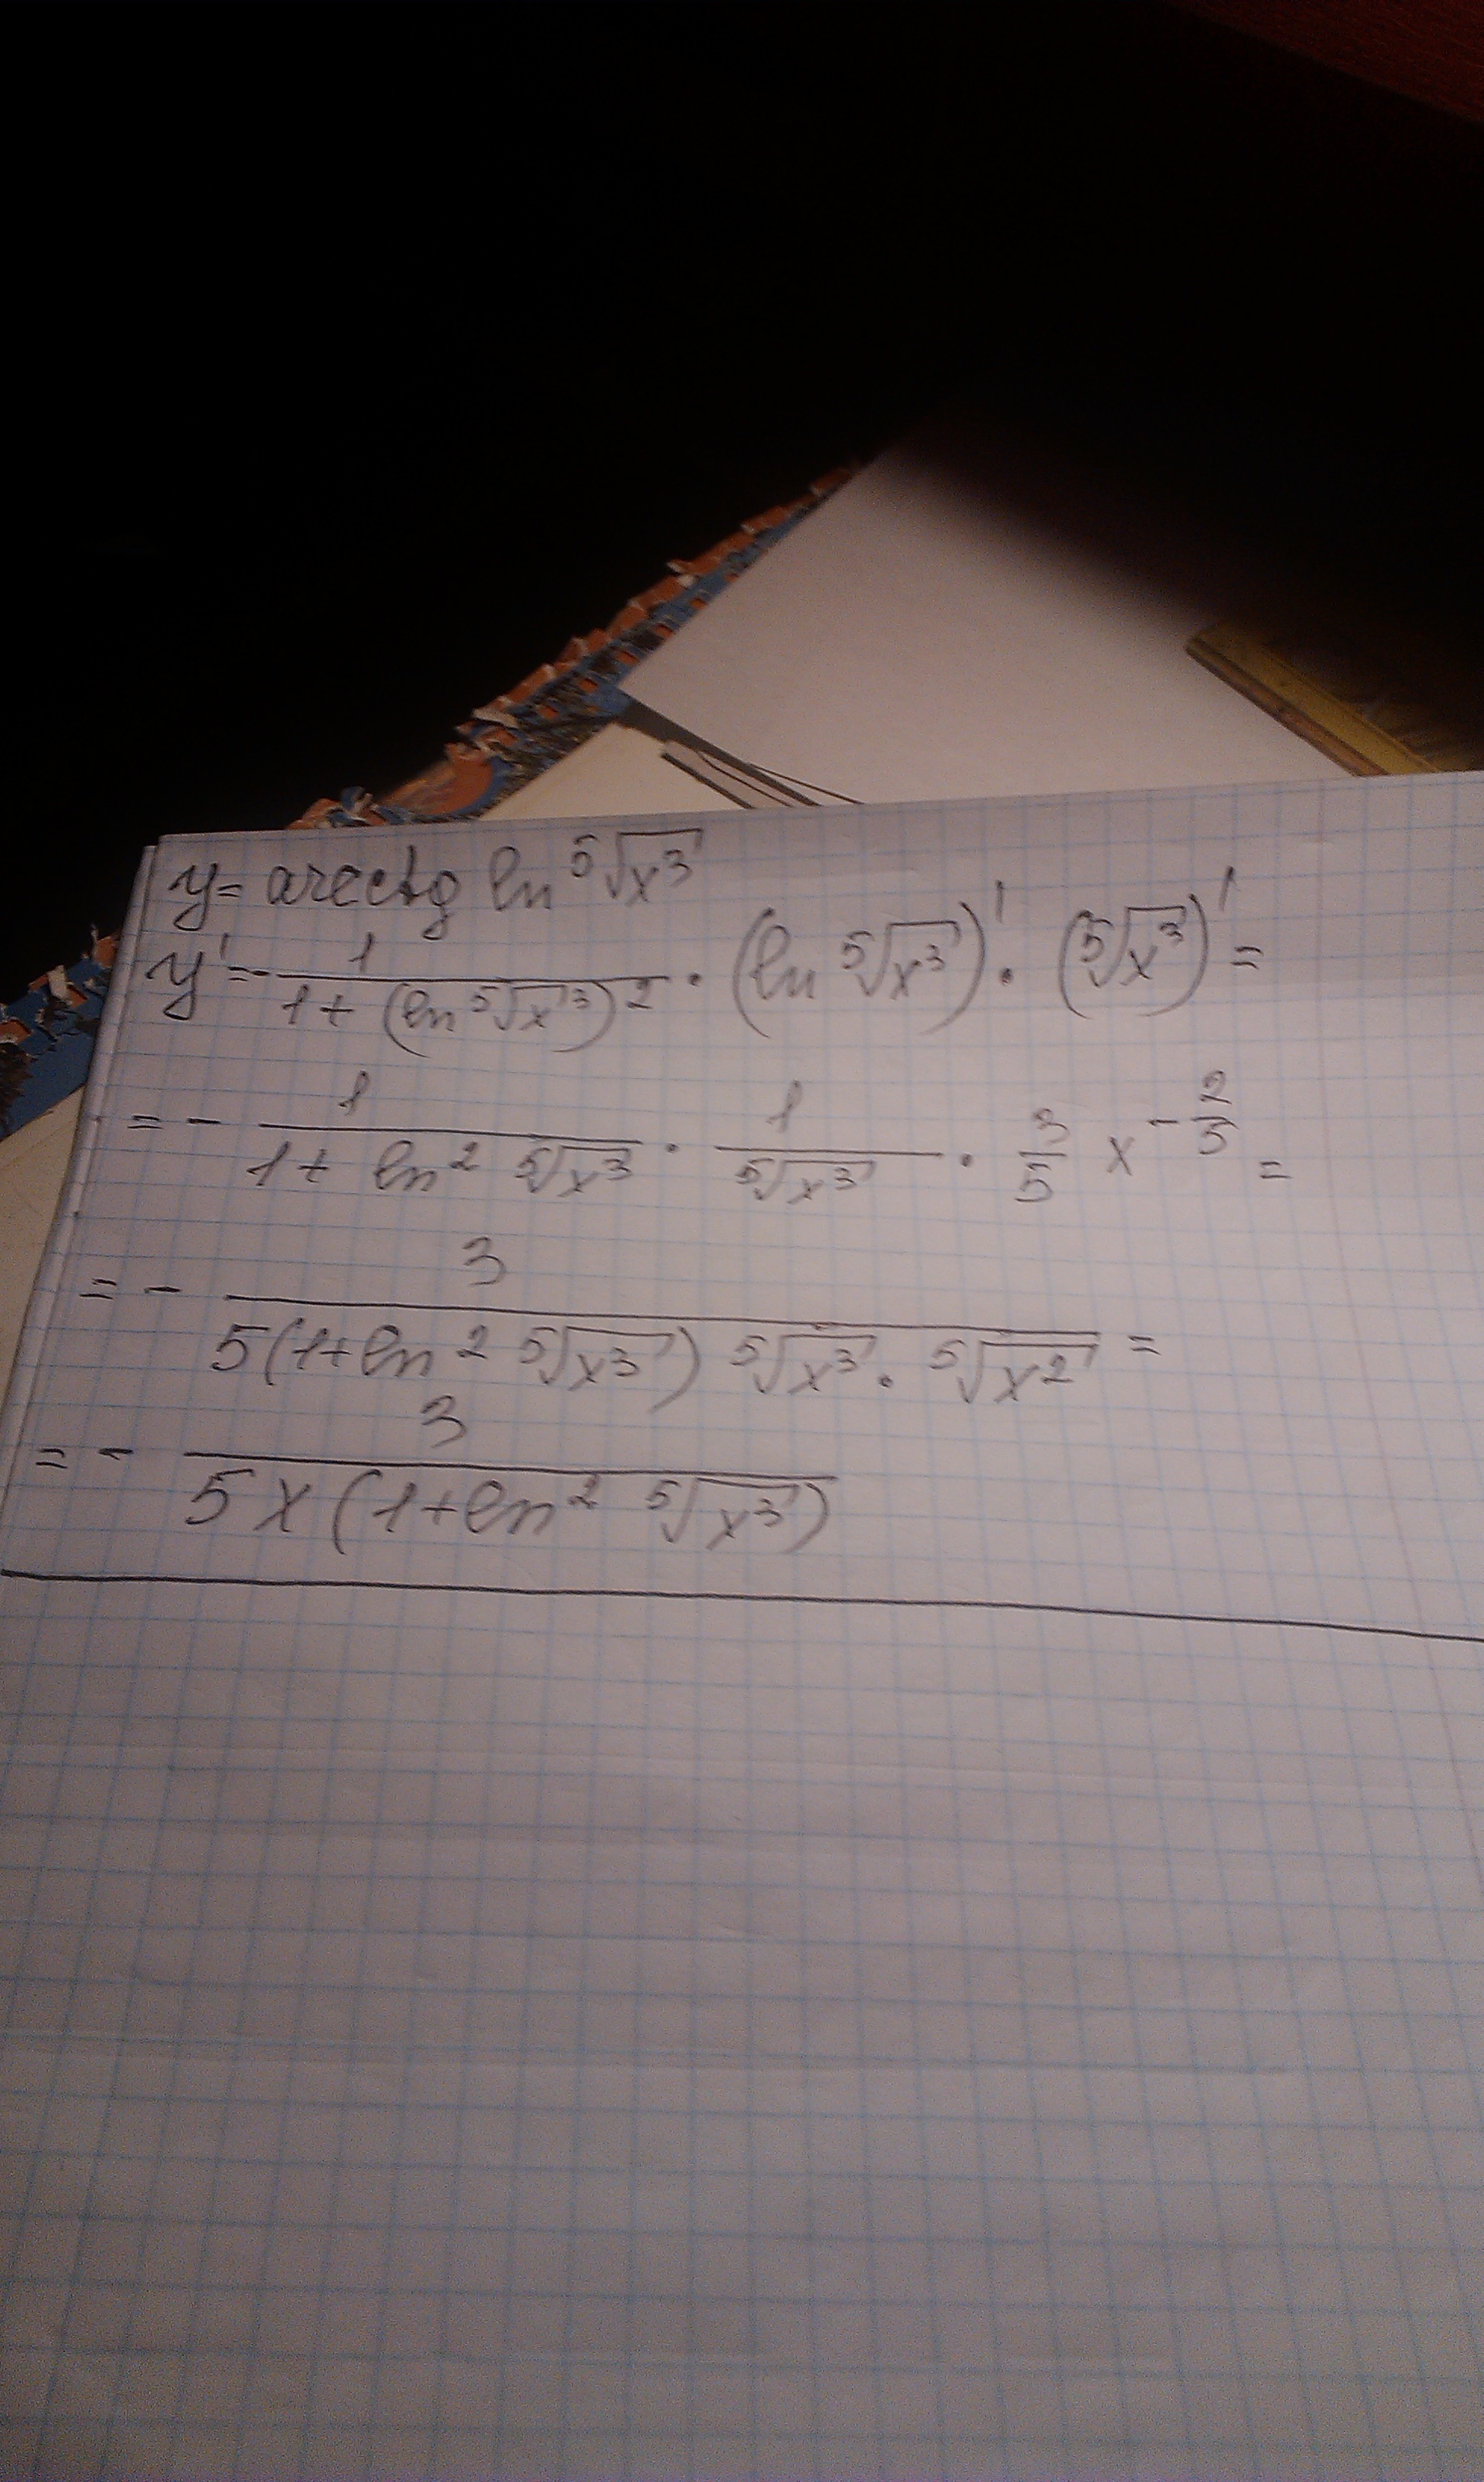 y = arcctg ln ⁵√x³
y' = - 1/(1 + (ln ⁵√x³)²) · (ln ⁵√x³)' · (⁵√x³)' =
= - 1/(1 + ln² ⁵√x³) · 1/⁵√x³ · 3/5 x^(-2/5) =
= - 3/(5(1+ln² ⁵√x³) ⁵√x³ · ⁵√x²) =
= - 3/(5x(1+ln² ⁵√x³))